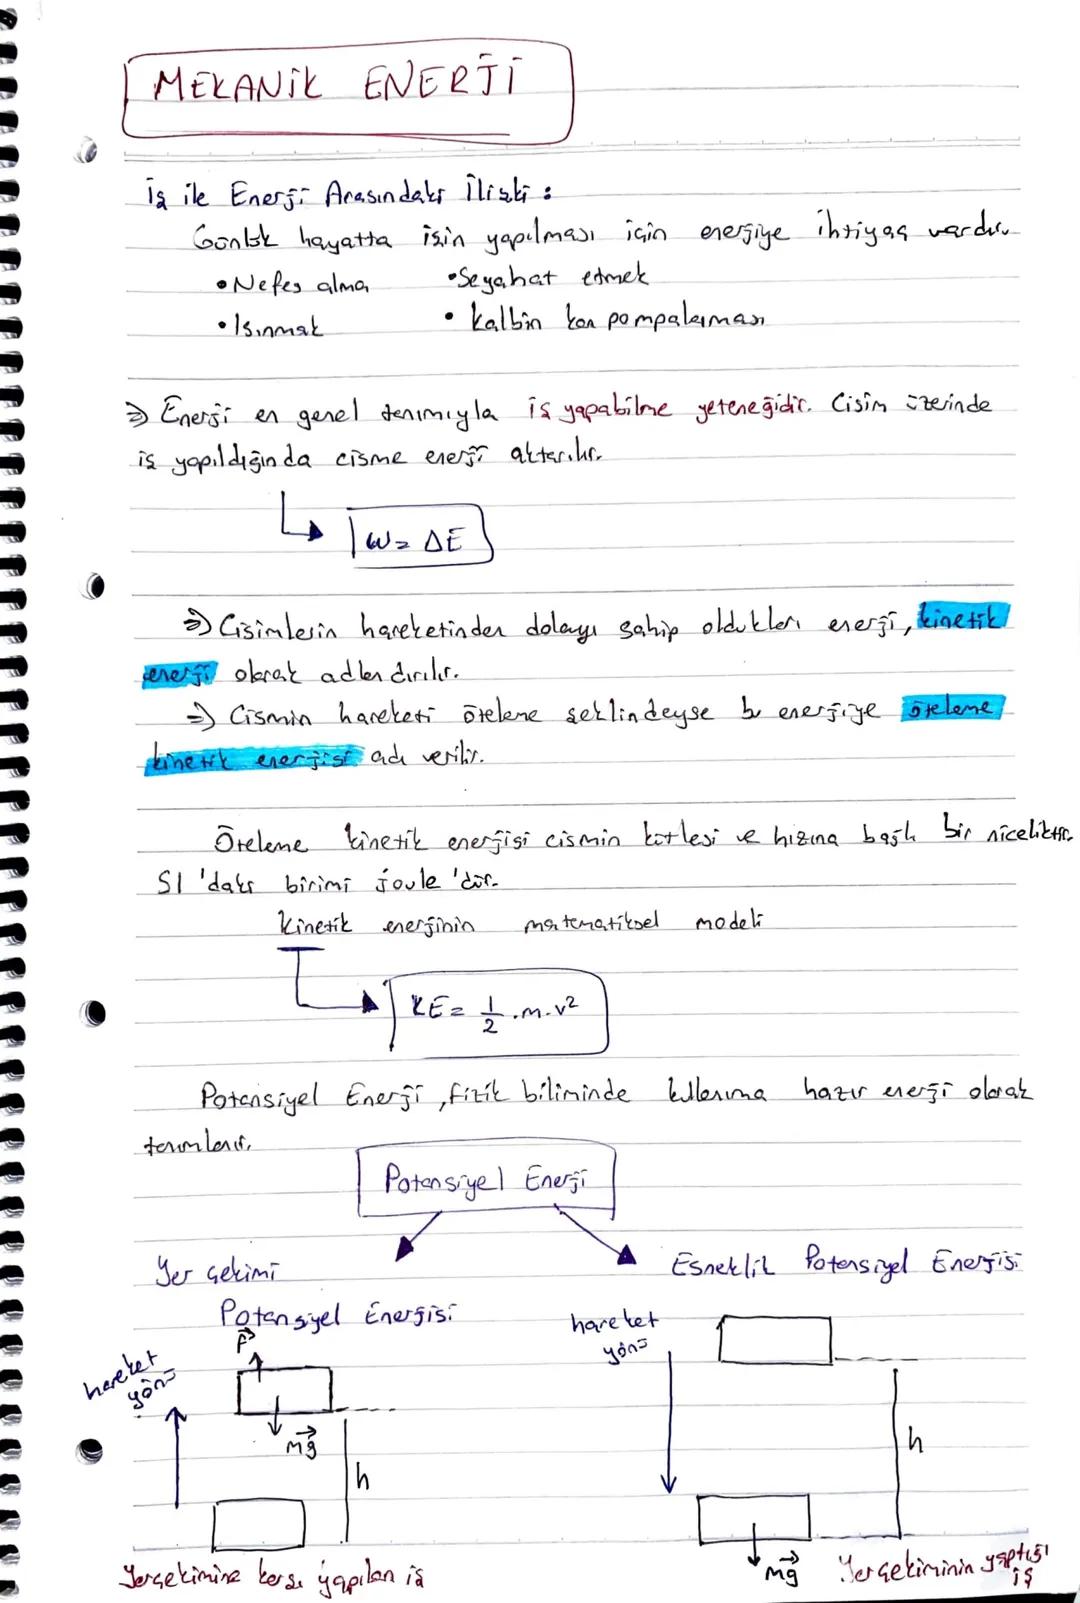 MEKANİK ENERJİ
İş ile Enerji Arasındaki İlişki :
Günlük hayatta işin yapılması için enerjiye ihtiyaç vardır.
• Nefes alma • Seyahat etmek
• Isınmak • Kalbin kan pompalaması
⇒ Enerji en genel tanımıyla iş yapabilme yeteneğidir. Cisim üzerinde
iş yapıldığında cisme enerji aktarılır.
W = ΔE
⇒ Cisimlerin hareketinden dolayı sahip oldukları enerji, kinetik
enerji olarak adlandırılır.
⇒ Cismin hareketi öteleme şeklindeyse bu enerjiye öteleme
kinetik enerjisi adı verilir.
Öteleme kinetik enerjisi cismin kütlesi ve hızına bağlı bir niceliktir.
SI 'daki birimi joule 'dür.
Kinetik enerjinin matematiksel modeli
KE = 1/2 .m.v²
Potansiyel Enerji, fizik biliminde kullanıma hazır enerji olarak
tanımlanır.
Potansiyel Enerji
Yer çekimi Esneklik Potansiyel Enerjisi
Potansiyel Enerjisi
hareket yönü F⃗ mg⃗ h
hareket yönü h mg⃗
Yerçekimine karşı yapılan iş Yerçekiminin yaptığı iş